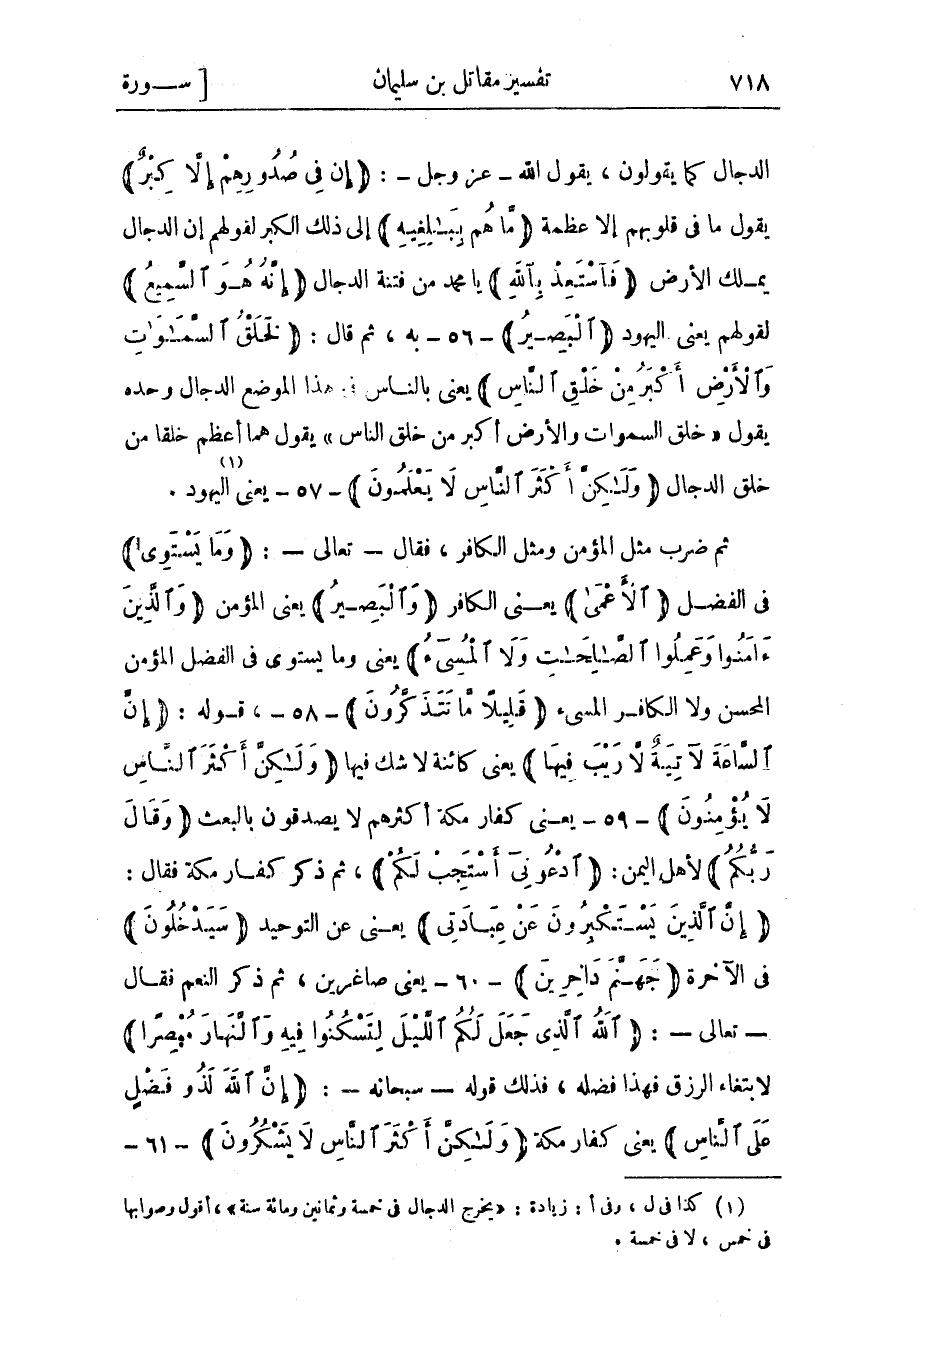 ٧١٨ تفسير مقاتل بن سليمان [ ســورة
الدجال كما يقولون ، يقول الله ـ عز وجل ـ : ﴿ إِن فِى صُدُورِهِمْ إِلَّا كِبْرٌ ﴾
يقول ما فى قلوبهم إلا عظمة ﴿ مَّا هُم بِبَـٰلِغِيهِ ﴾ إلى ذلك الكبر لقولهم إن الدجال
يمـلك الأرض ﴿ فَٱسْتَعِذْ بِٱللَّهِ ﴾ يا محمد من فتنة الدجال ﴿ إِنَّهُ هُـوَ ٱلسَّمِيعُ ﴾
لقولهم يعنى اليهود ﴿ ٱلْبَصِـيرُ ﴾ ـ ٥٦ ـ به ، ثم قال : ﴿ لَخَلْقُ ٱلسَّمَـٰوَٰتِ
وَٱلْأَرْضِ أَكْبَرُ مِنْ خَلْقِ ٱلنَّاسِ ﴾ يعنى بالنـاس فى هذا الموضع الدجال وحده
يقول « خلق السموات والأرض أكبر من خلق الناس » يقول هما أعظم خلقا من
خلق الدجال ﴿ وَلَـٰكِنَّ أَكْثَرَ ٱلنَّاسِ لَا يَعْلَمُونَ ﴾ ـ ٥٧ ـ يعنى اليهود (١) .
ثم ضرب مثل المؤمن ومثل الكافر ، فقال ـ تعالى ـ : ﴿ وَمَا يَسْتَوِى ﴾
فى الفضـل ﴿ ٱلْأَعْمَىٰ ﴾ يعـنى الكافر ﴿ وَٱلْبَصِـيرُ ﴾ يعنى المؤمن ﴿ وَٱلَّذِينَ
ءَامَنُوا وَعَمِلُوا ٱلصَّـٰلِحَـٰتِ وَلَا ٱلْمُسِىٓءُ ﴾ يعنى وما يستوى فى الفضل المؤمن
المحسن ولا الكافـر المسىء ﴿ قَلِيلًا مَّا تَتَذَكَّرُونَ ﴾ ـ ٥٨ ـ ، قـوله : ﴿ إِنَّ
ٱلسَّاعَةَ لَآتِيَةٌ لَّا رَيْبَ فِيهَا ﴾ يعنى كائنة لا شك فيها ﴿ وَلَـٰكِنَّ أَكْثَرَ ٱلنَّاسِ
لَا يُؤْمِنُونَ ﴾ ـ ٥٩ ـ يعـنى كفار مكة أكثرهم لا يصدقون بالبعث ﴿ وَقَالَ
رَبُّكُمُ ﴾ لأهل اليمن : ﴿ ٱدْعُونِىٓ أَسْتَجِبْ لَكُمْ ﴾ ، ثم ذكر كفـار مكة فقال :
﴿ إِنَّ ٱلَّذِينَ يَسْتَكْبِرُونَ عَنْ عِبَـادَتِى ﴾ يعـنى عن التوحيد ﴿ سَيَدْخُلُونَ ﴾
فى الآخرة ﴿ جَهَـنَّمَ دَاخِرِينَ ﴾ ـ ٦٠ ـ يعنى صاغرين ، ثم ذكر النعم فقـال
ـ تعالى ـ : ﴿ ٱللَّهُ ٱلَّذِى جَعَلَ لَكُمُ ٱللَّيْـلَ لِتَسْكُنُوا فِيهِ وَٱلنَّهَارَ مُبْصِرًا ﴾
لابتغاء الرزق فهذا فضله ، فذلك قوله ـ سبحانه ـ : ﴿ إِنَّ ٱللَّهَ لَذُو فَضْلٍ
عَلَى ٱلنَّاسِ ﴾ يعنى كفار مكة ﴿ وَلَـٰكِنَّ أَكْثَرَ ٱلنَّاسِ لَا يَشْكُرُونَ ﴾ ـ ٦١ ـ
(١) كذا فى ل ، وفى أ : زيادة : « يخرج الدجال فى خمسة وثمانين ومائة سنة » ، أقول وصوابها
فى خمس ، لا فى خمسة .